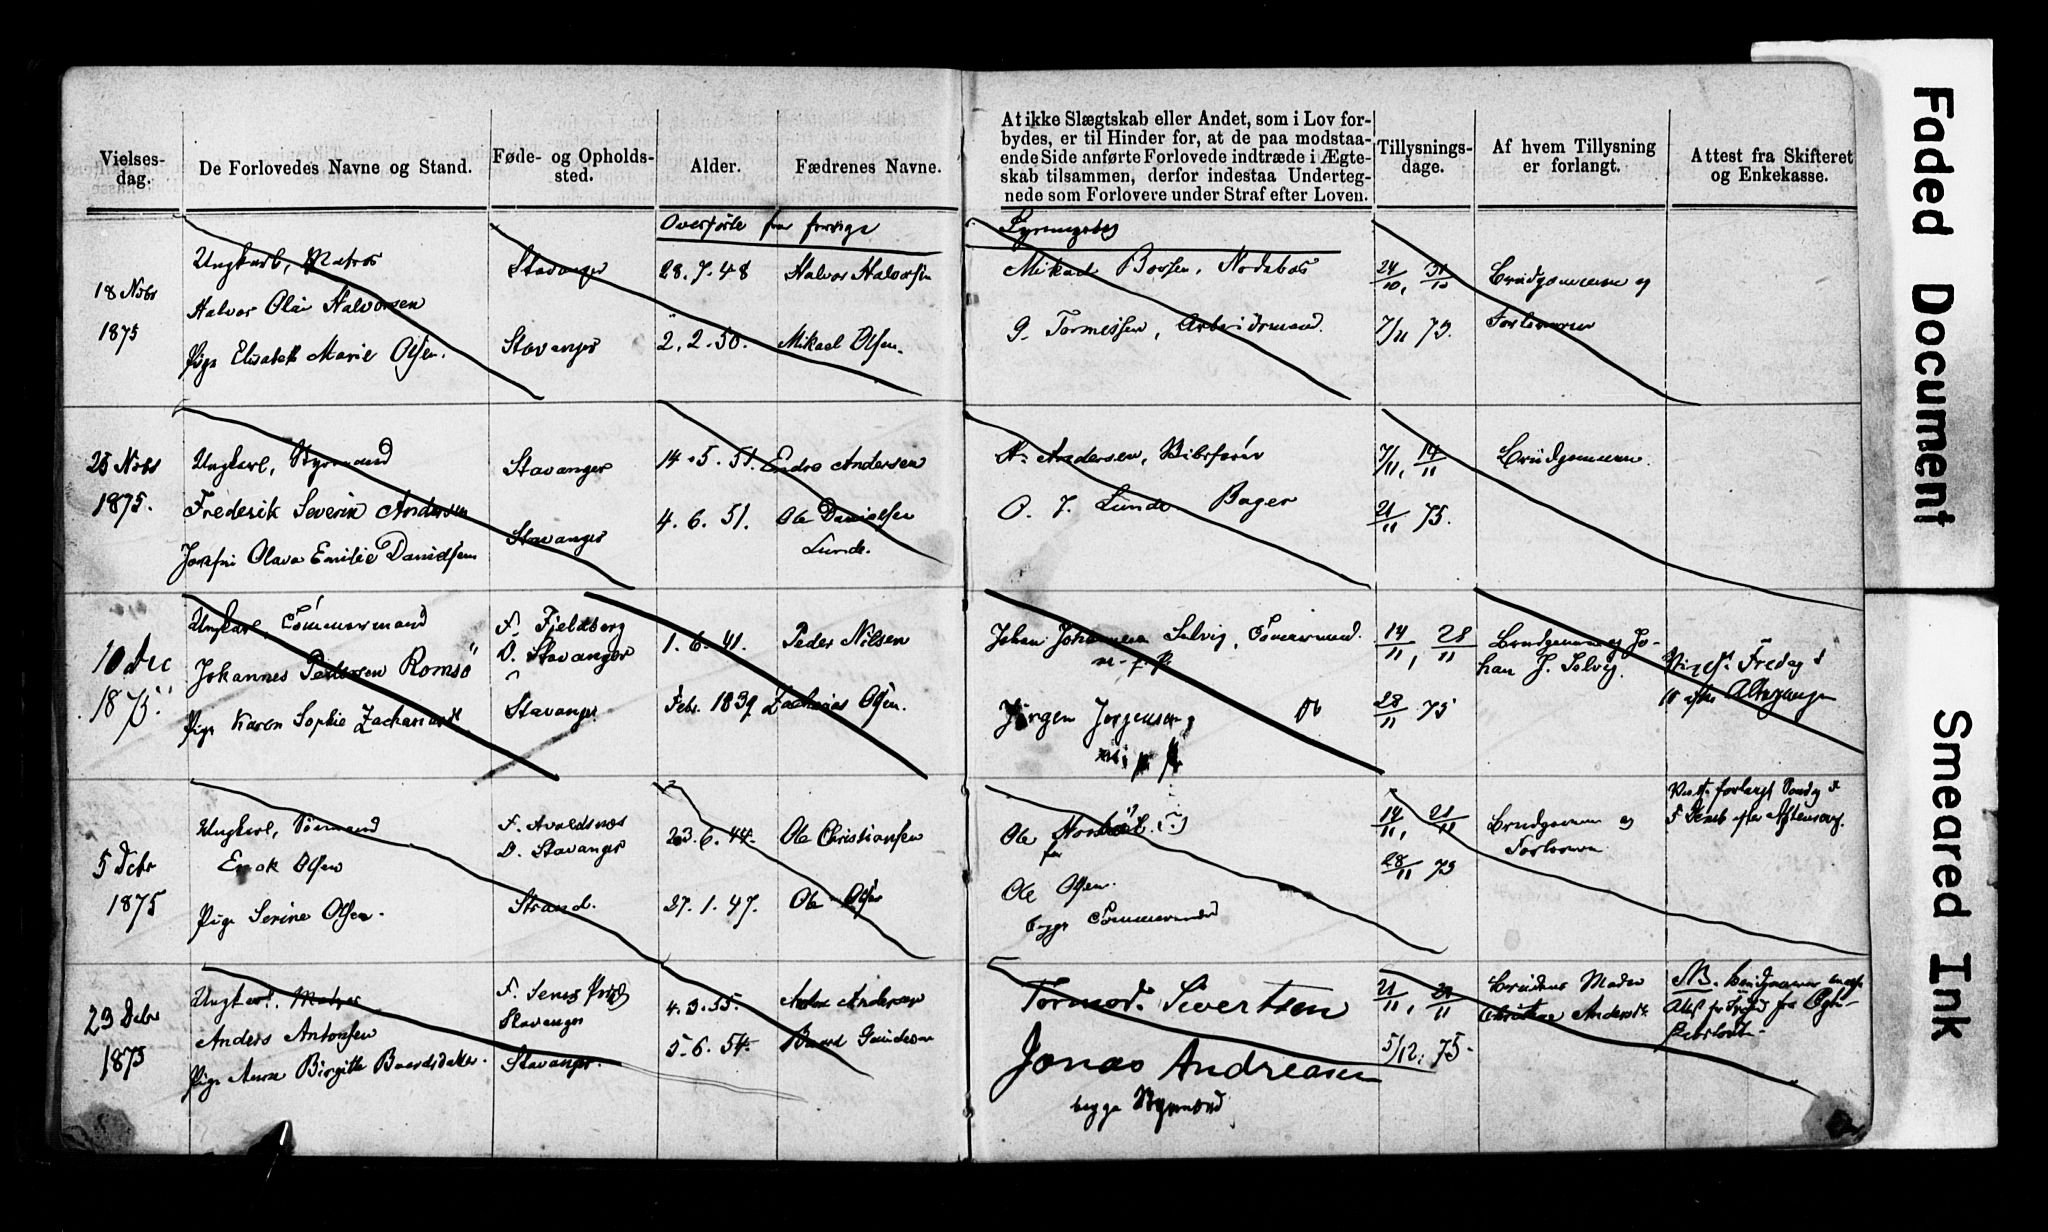 Vielses-
dag.
De Forlovedes Navne og Stand.
Føde- og Opholds-
sted.
Alder.
Fædrenes Navne.
At ikke Slægtskab eller Andet, som i Lov for-
bydes, er til Hinder for, at de paa modstaa-
ende Side anførte Forlovede indtræde i Ægte-
skab tilsammen, derfor indestaa Underteg-
nede som Forlovere under Straf efter Loven.
Tillysnings-
dage.
Af hvem Tillysning
er forlangt.
Attest fra Skifteret
og Enkekasse.
Overførte fra forrige
Lysningsbog
18 Novbr
1875
Ungkarl, Matros
Halvor Olai Halvorsen
Pige Elisabeth Marie Olsen.
Stavanger
Stavanger
28. 7. 48
2. 2. 50.
Halvor Halvorsen
Mikael Olsen.
Mikael
G. Tormessen, Arbeidsmand.
24/10, 31/10
7/11 75.
Brudgommen og
Forloveren
25 Novbr
1875.
Ungkarl, Styrmand
Frederik Severin Andersen
Josefine Olava Emilie Danielsen
Stavanger
Stavanger
14. 5. 51.
4. 6. 51.
Endre Andersen
Ole Danielsen
Lunde.
A. Andersen,
O. J. Lunde Bager
7/11, 14/11
21/11 75.
Brudgommen.
10 Dec
1875.
Ungkarl, Tømmermand
Johannes Pedersen Romsö
Pige Karen Sophie Zachariasd.
F. Fjeldberg
O. Stavanger
Stavanger
1. 6. 41.
Febr. 1839
Peder Nilsen
Zacharias Olsen.
Johan Johannesen Solvig, Tømmermand.
m. f. P.
Jörgen Jorgensen
m. f. P.
14/11, 28/11
28/11 75
Brudgommen og Jo-
han J. Solvig.
Viges Fredag d
10 efter Altergangen
5 Debr
1875
Ungkarl, Sømand
Enok Olsen
Pige Serine Olsen.
F. Avaldsnæs
O. Stavanger
Strand.
23. 6. 44.
27. 1. 47.
Ole Christiansen
Ole Olsen
Ole
Ole Olsen.
begge Tømmermænd
14/11, 21/11
28/11 75
Brudgommen og
Forloveren
forlangt Søndag d
5 Decb efter Aftensang.
23 Debr
1875
Ungkarl, Matros
Anders Antonsen
Pige Anna Birgitte Baardsdatter.
Stavanger
Stavanger.
4. 3. 55.
5. 6. 54.
Andersen
Baard Gundersen
Tormod Sivertsen
Jonas Andreasen
begge Styrmænd
21/11, 28/11
5/12. 75.
Brudens Moder
NB. Brudgommen
Faded Document
Smeared Ink